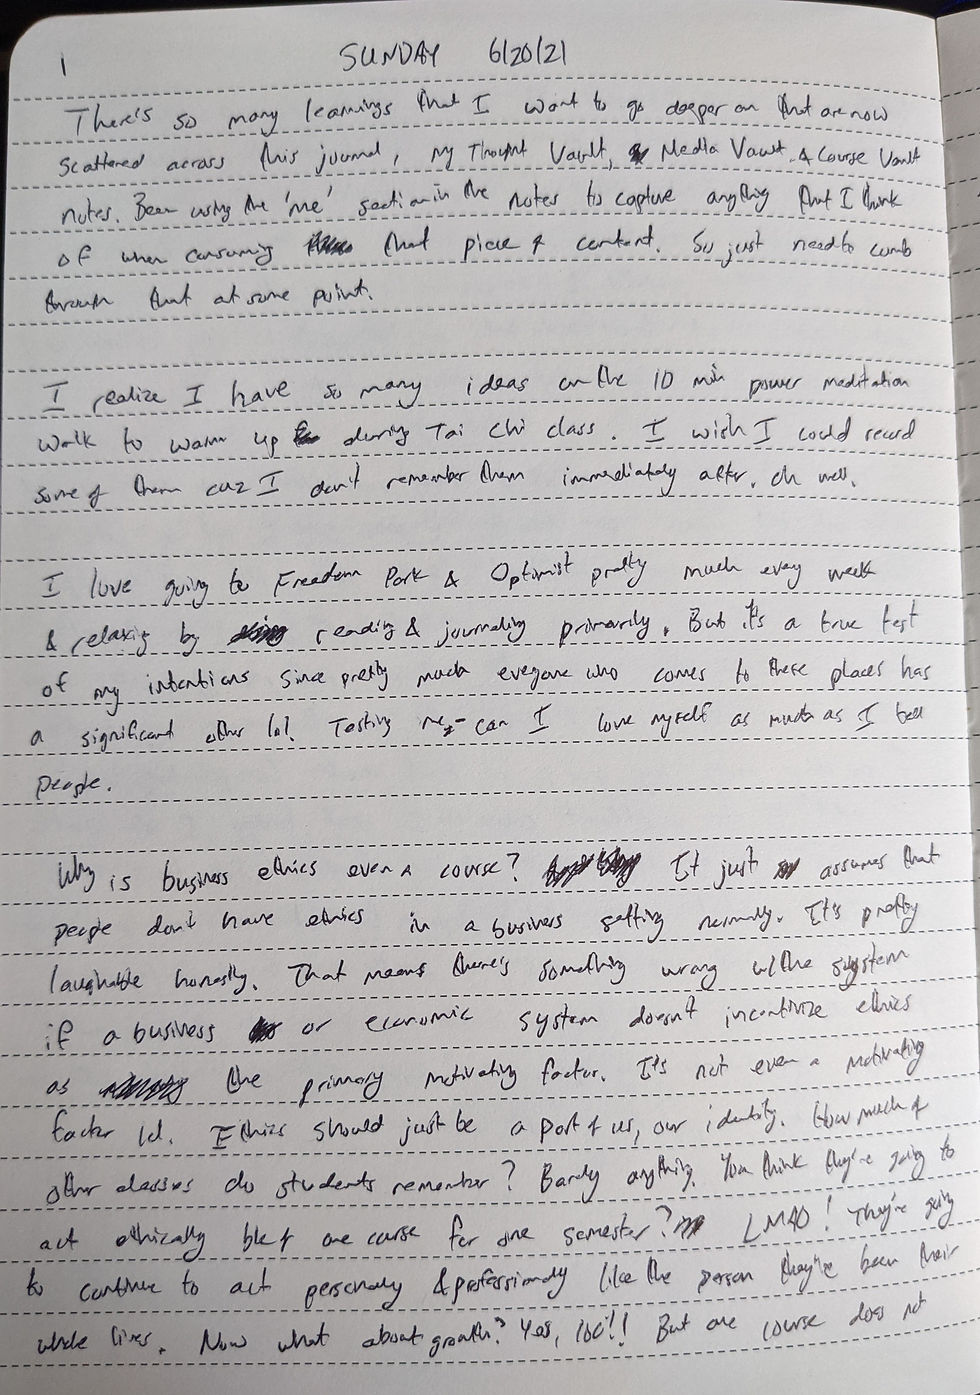 1 SUNDAY 6/20/21
There's so many learnings that I want to go deeper on that are now
scattered across this journal, my Thought Vault, Media Vault, & Course Vault
notes. Been using the 'me' section in the notes to capture anything that I think
of when consuming that piece of content. So just need to comb
through that at some point.
I realize I have so many ideas on the 10 min power meditation
walk to warm up during Tai Chi class. I wish I could record
some of them cuz I don't remember them immediately after, oh well.
I love going to Freedom Park & Optimist pretty much every week
& relaxing by reading & journaling primarily. But it's a true test
of my intentions since pretty much everyone who comes to these places has
a significant other lol. Testing me - can I love myself as much as I tell
people.
Why is business ethics even a course? It just assumes that
people don't have ethics in a business setting normally. It's pretty
laughable honestly. That means there's something wrong w/the system
if a business or economic system doesn't incentivize ethics
as the primary motivating factor. It's not even a motivating
factor lol. Ethics should just be a part of us, our identity. How much of
other classes do students remember? Barely anything. You think they're going to
act ethically b/c of one course for one semester? LMAO! They're going
to continue to act personally & professionally like the person they've been their
whole lives. Now what about growth? Yes, 100!! But one course does not